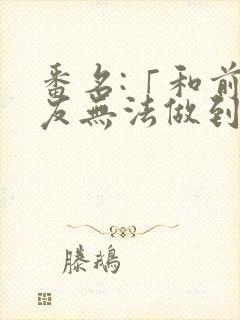 番名:「和前
友無法做到
滕鵝